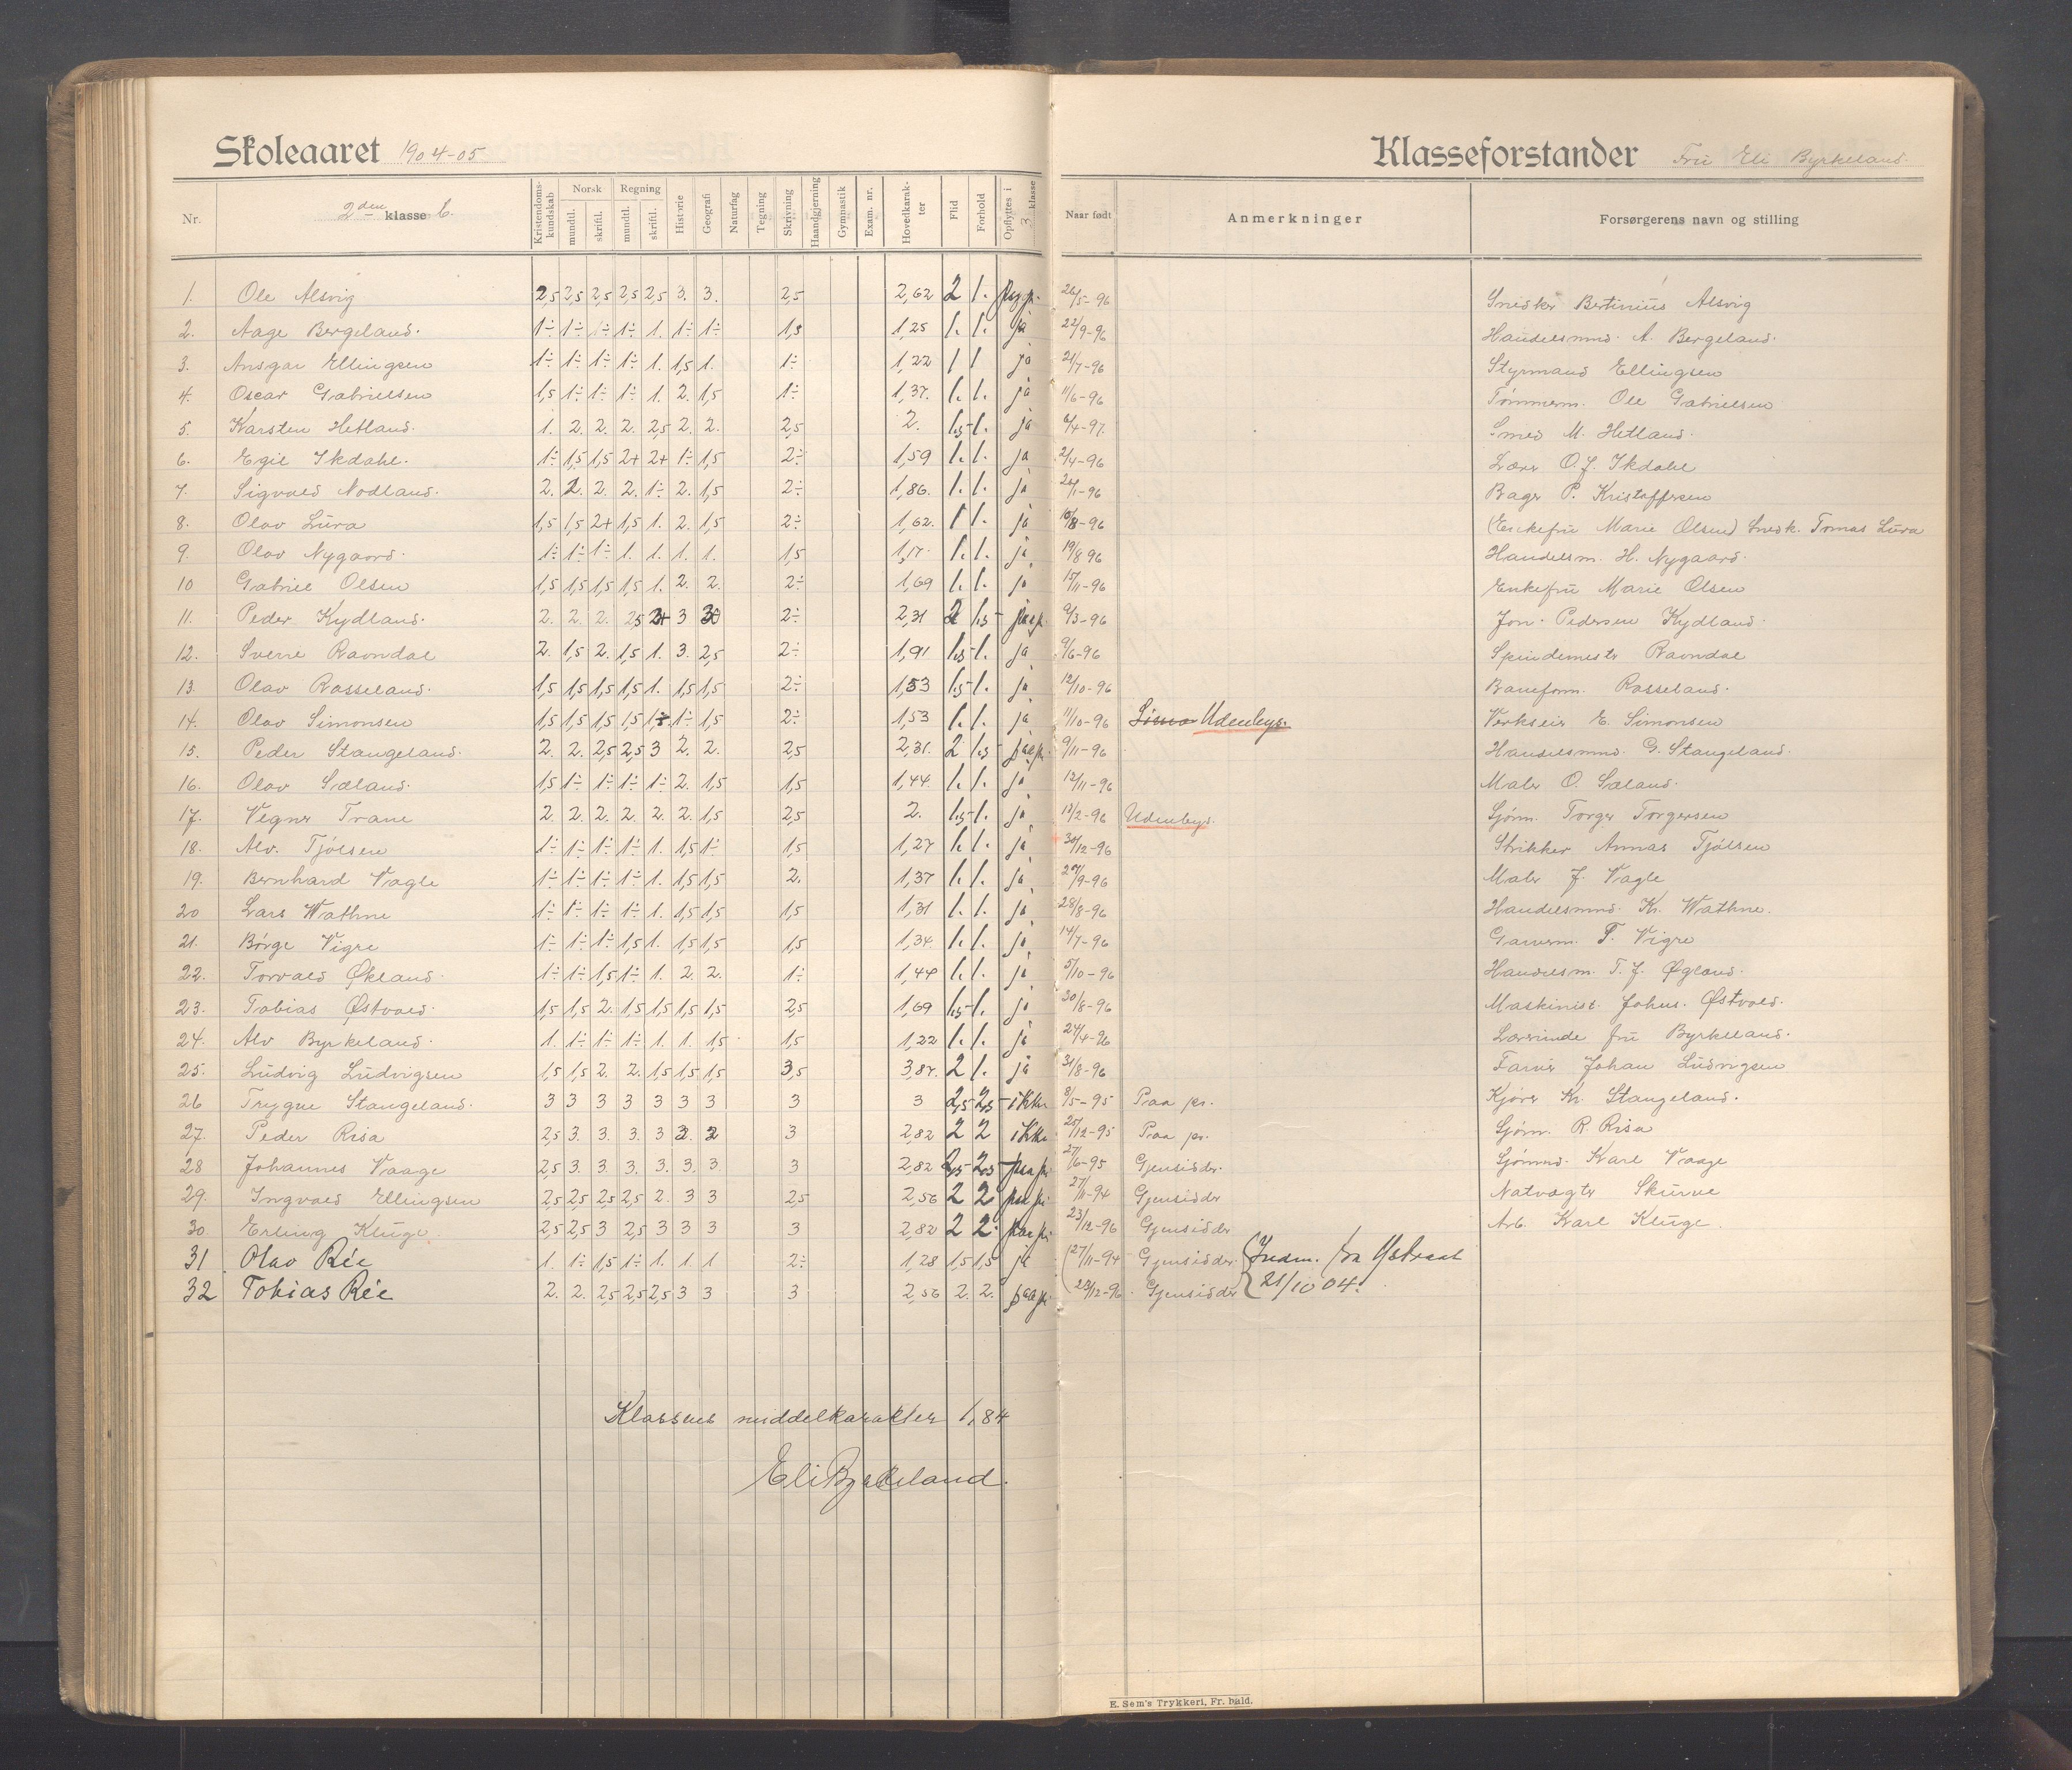 Skoleaaret 1904-05
Klasseforstander Fru Eli Byrkeland.
Nr. 2den klasse C. Kristendomskundskab Norsk mundtl. skriftl. Regning mundtl. skriftl. Historie Geografi Naturfag Tegning Skrivning Haandgjerning Gymnastik Exam. nr. Hovedkarakter Flid Forhold Opflyttes i 3 klasse Naar født Anmerkninger Forsørgerens navn og stilling
1. Ole Alsvig 2,5 2,5 2,5 2,5 2,5 3. 3. 2,5 2,62 2 1. 26/5-96 Snedker Bertinius Alsvig
2. Aage Bergeland. 1÷ 1÷ 1÷ 1÷ 1. 1÷ 1÷ 1,5 1,25 1. 1. ja 22/9-96 Handelsmnd. A. Bergeland.
3. Ansgar Ellingsen 1÷ 1÷ 1÷ 1÷ 1. 1,5 1. 1÷ 1,22 1 1 ja 21/7-96 Styrmand Ellingsen
4. Oscar Gabrielsen 1,5 1÷ 1÷ 1÷ 1. 2. 1,5 1÷ 1,37. 1. 1. ja 11/6-96 Tømmerm. Ole Gabrielsen
5. Karsten Hetland. 1. 2. 2. 2. 2,5 2. 2. 2,5 2. 1,5 1. ja 6/4-97. Smed M. Hetland.
6. Egil Ikdahl. 1÷ 1,5 1,5 2+ 2+ 1÷ 1,5 2÷ 1,59 1. 1. ja 2/4-96 Lærer O. J. Ikdahl
7. Sigvald Nodland. 2. 2. 2. 2. 1÷ 2. 1,5 2÷ 1,86. 1. 1. ja 26/1-96 Bager P. Kristoffersen
8. Olav Lura 1,5 1,5 2+ 1,5 1. 2. 1,5 2÷ 1,62. 1 1. ja 10/8-96 (Enkefru Marie Olsen) Snedk. Tomas Lura
9. Olav Nygaard. 1÷ 1÷ 1÷ 1. 1. 1. 1. 1,5 1,17. 1. 1. ja 19/8 96 Handelsm. H. Nygaard.
10 Gabriel Olsen 1,5 1,5 1,5 1,5 1. 2. 2. 2÷ 1,69 1. 1. ja 15/11-96 Enkefru Marie Olsen
11. Peder Kydland. 2. 2. 2. 2,5 3 2÷ 2,31 2 1,5 9/3-96 Jon. Pedersen Kydland.
12. Sverre Ravndal 2. 1,5 2. 1,5 1. 3. 2,5 2÷ 1,91 1,5 1. ja 9/6-96 Spindemester Ravndal
13. Olav Rasseland. 1,5 1,5 1,5 1,5 1. 1,5 1,5 2÷ 1,53 1,5 1. ja 12/10-96 Baneform. Rasseland.
14. Olav Simonsen 1,5 1,5 1,5 1,5 1÷ 1÷ 1,5 2÷ 1,53 1. 1. ja 11/10-96 Udenbys. Verkseier E. Simonsen
15. Peder Stangeland. 2. 2. 2,5 2,5 3 2. 2. 2,5 2,31. 2 1,5 9/11-96 Handelsmnd. G. Stangeland.
16. Olav Sæland. 1,5 1÷ 1÷ 1÷ 1÷ 2. 1,5 1,5 1,44. 1. 1. ja 12/11-96 Maler O. Sæland.
17. Vegner Trane 2. 2. 2. 2. 2. 2. 1,5 2,5 2. 1,5 1. ja 13/2-96 Udenbys. Sjøm. Torger Torgersen
18. Alv. Tjølsen 1÷ 1÷ 1÷ 1÷ 1. 1,5 1÷ 1,5 1,27 1. 1. ja 30/12-96 Strikker Annas Tjølsen
19. Bernhard Vagle 1÷ 1÷ 1÷ 1÷ 1. 1,5 1,5 2. 1,37 1. 1. ja 29/9-96 Maler J. Vagle
20 Lars Wathne 1÷ 1÷ 1÷ 1÷ 1. 1,5 1,5 1,5 1,31 1. 1. ja 28/8-96 Handelsmnd. Kr. Wathne.
21. Børge Vigre 1÷ 1÷ 1÷ 1,5 1. 1,5 1,5 1,5 1,34. 1. 1. ja 14/7-96 Garverm. T. Vigre
22. Torvald Økland. 1÷ 1÷ 1,5 1÷ 1. 2. 2. 1÷ 1,44 1. 1. ja 5/10-96 Handelsm. T. J. Øgland.
23. Tobias Østvold. 1,5 1,5 2. 1,5 1,5 1,5 1,5 2,5 1,69 1,5 1. ja 30/8-96 Maskinist. Johns. Østvold.
24. Alv Byrkeland. 1. 1÷ 1÷ 1÷ 1. 1. 1,5 1,5 1,22 1. 1. ja 24/4-96 Lærerinde fru Byrkeland.
25. Ludvig Ludvigsen 1,5 1,5 2. 2. 1,5 1,5 1,5 3,5 3,87. 2 1. ja 31/8-96 Farver Johan Ludvigsen
26 Trygve Stangeland. 3 3 3 3 3 3 3 3 3 2,5 2,5 ikke 8/5-95 Paa pr. Kjører Kr. Stangeland.
27. Peder Risa 2,5 3. 3. 3. 3 2. 2 3 2,82 2 2 ikke 25/12-95 Paa pr. Sjøm. R. Risa
28 Johannes Vaage 2,5 3. 3. 3. 3. 3. 3 3 2,82 2,5 2,5 paa pr. 27/6-95 Gjensidder. Sjømnd. Karl Vaage
29. Ingvald Ellingsen 2,5 2,5 2,5 2,5 2. 3 3 2,5 2,56 2 2 paa pr. 27/11-94 Gjensidder Natvægter Skurve
30. Erling Kluge. 2,5 2,5 3 2,5 3 3 3 3 2,82 2 2. paa pr. 23/12-96 Gjensidder Arb. Karl Kluge.
31 Olav Rée 1. 1÷ 1,5 1÷ 1. 1. 1 2÷ 1,28 1,5 1,5 ja (27/11-94 Gjensidder. Indm. fra
32 Tobias Rée 2. 2. 2,5 2,5 2,5 3 3 3 2,56 2. 2. paa pr. 28/12-96. Gjensidder 21/10 04.
Klassens middelkarakter 1,84
Eli Byrkeland.
E. Sem's Trykkeri, Fr. hald.